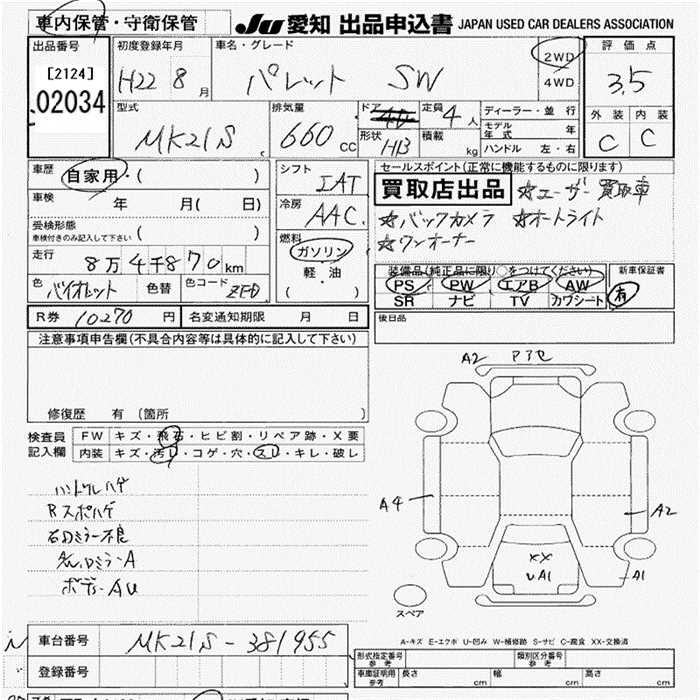 車内保管・守衛保管
JU 愛知 出品申込書 JAPAN USED CAR DEALERS ASSOCIATION
出品番号 初度登録年月 車名・グレード 2WD 評価点
[2124] H22 8月 パレット SW 4WD 3.5
02034
型式 排気量 ドア 4D 定員 4人 ディーラー・並行 外装 内装
MK21S 660cc 形状 HB 積載 kg モデル年式 年 C C
ハンドル 左・右
車歴 自家用・( ) シフト IAT セールスポイント(正常に機能するものに限ります)
買取店出品 ☆ユーザー買取車
車検 年 月( 日) 冷房 AAC ☆バックカメラ ☆オートライト
受検形態 車検付きのみ記入して下さい ( ) ☆ワンオーナー
走行 8万4千870km 燃料 ガソリン
軽・油
( )
装備品(純正品に限り○をつけてください) 新車保証書
色 バイオレット 色替 色コード ZFD PS PW エアB AW 有
SR ナビ TV カワシート
R券 10270円 名変通知期限 月 日 後日品
注意事項申告欄(不具合内容等は具体的に記入して下さい)
A2 アアセ
修復歴 有 (箇所
検査員 FW キズ・飛石・ヒビ割・リペア跡・X要
記入欄 内装 キズ・汚レ・コゲ・穴・スレ・キレ・破レ
ハンドルハゲ
A4 A2
Rスポハゲ
右Dミラー不良
XX
UA1 A1
ボデーAU
スペア
A-キズ E-エクボ U-凹み W-補修跡 S-サビ C-腐食 XX-交換済
車台番号 MK21S-381955
登録番号
形式指定番号 参考 類別区分番号 参考
車庫証明用 参考 長さ cm 幅 cm 高さ cm